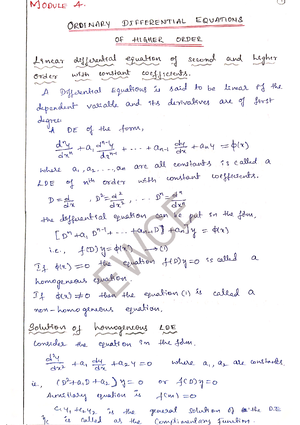 MODULE 4.
ORDINARY DIFFERENTIAL EQUATIONS
OF HIGHER ORDER
Linear differential equation of second and higher
order with constant coefficients.
A Differential equations is said to be linear if the
dependent variable and its derivatives are of first
degree
A DE of the form,
dⁿy/dxⁿ + a₁ dⁿ⁻¹y/dxⁿ⁻¹ + ... + aₙ₋₁ dy/dx + aₙy = φ(x)
where a₁, a₂, ..., an are all constants is called a
LDE of nth order with constant coefficients.
D = d/dx , D² = d²/dx² , ... Dⁿ = dⁿ/dxⁿ
the differential equation can be put in the form,
[Dⁿ + a₁ Dⁿ⁻¹ + ... + aₙ₋₁ D + aₙ] y = φ(x)
i.e., f(D)y = φ(x) → (1)
If φ(x) = 0 the equation f(D)y = 0 is called a
homogeneous equation
If φ(x) ≠ 0 then the equation (1) is called a
non-homogeneous equation.
Solution of homogeneous LDE
Consider the equation in the form.
d²y/dx² + a₁ dy/dx + a₂ y = 0 where a₁, a₂ are constants
ie, (D² + a₁D + a₂) y = 0 or f(D)y = 0
Auxiliary equation is f(m) = 0
c₁y₁ + c₂y₂ is the general solution of the DE
is called as the Complimentary Function.
EWCE